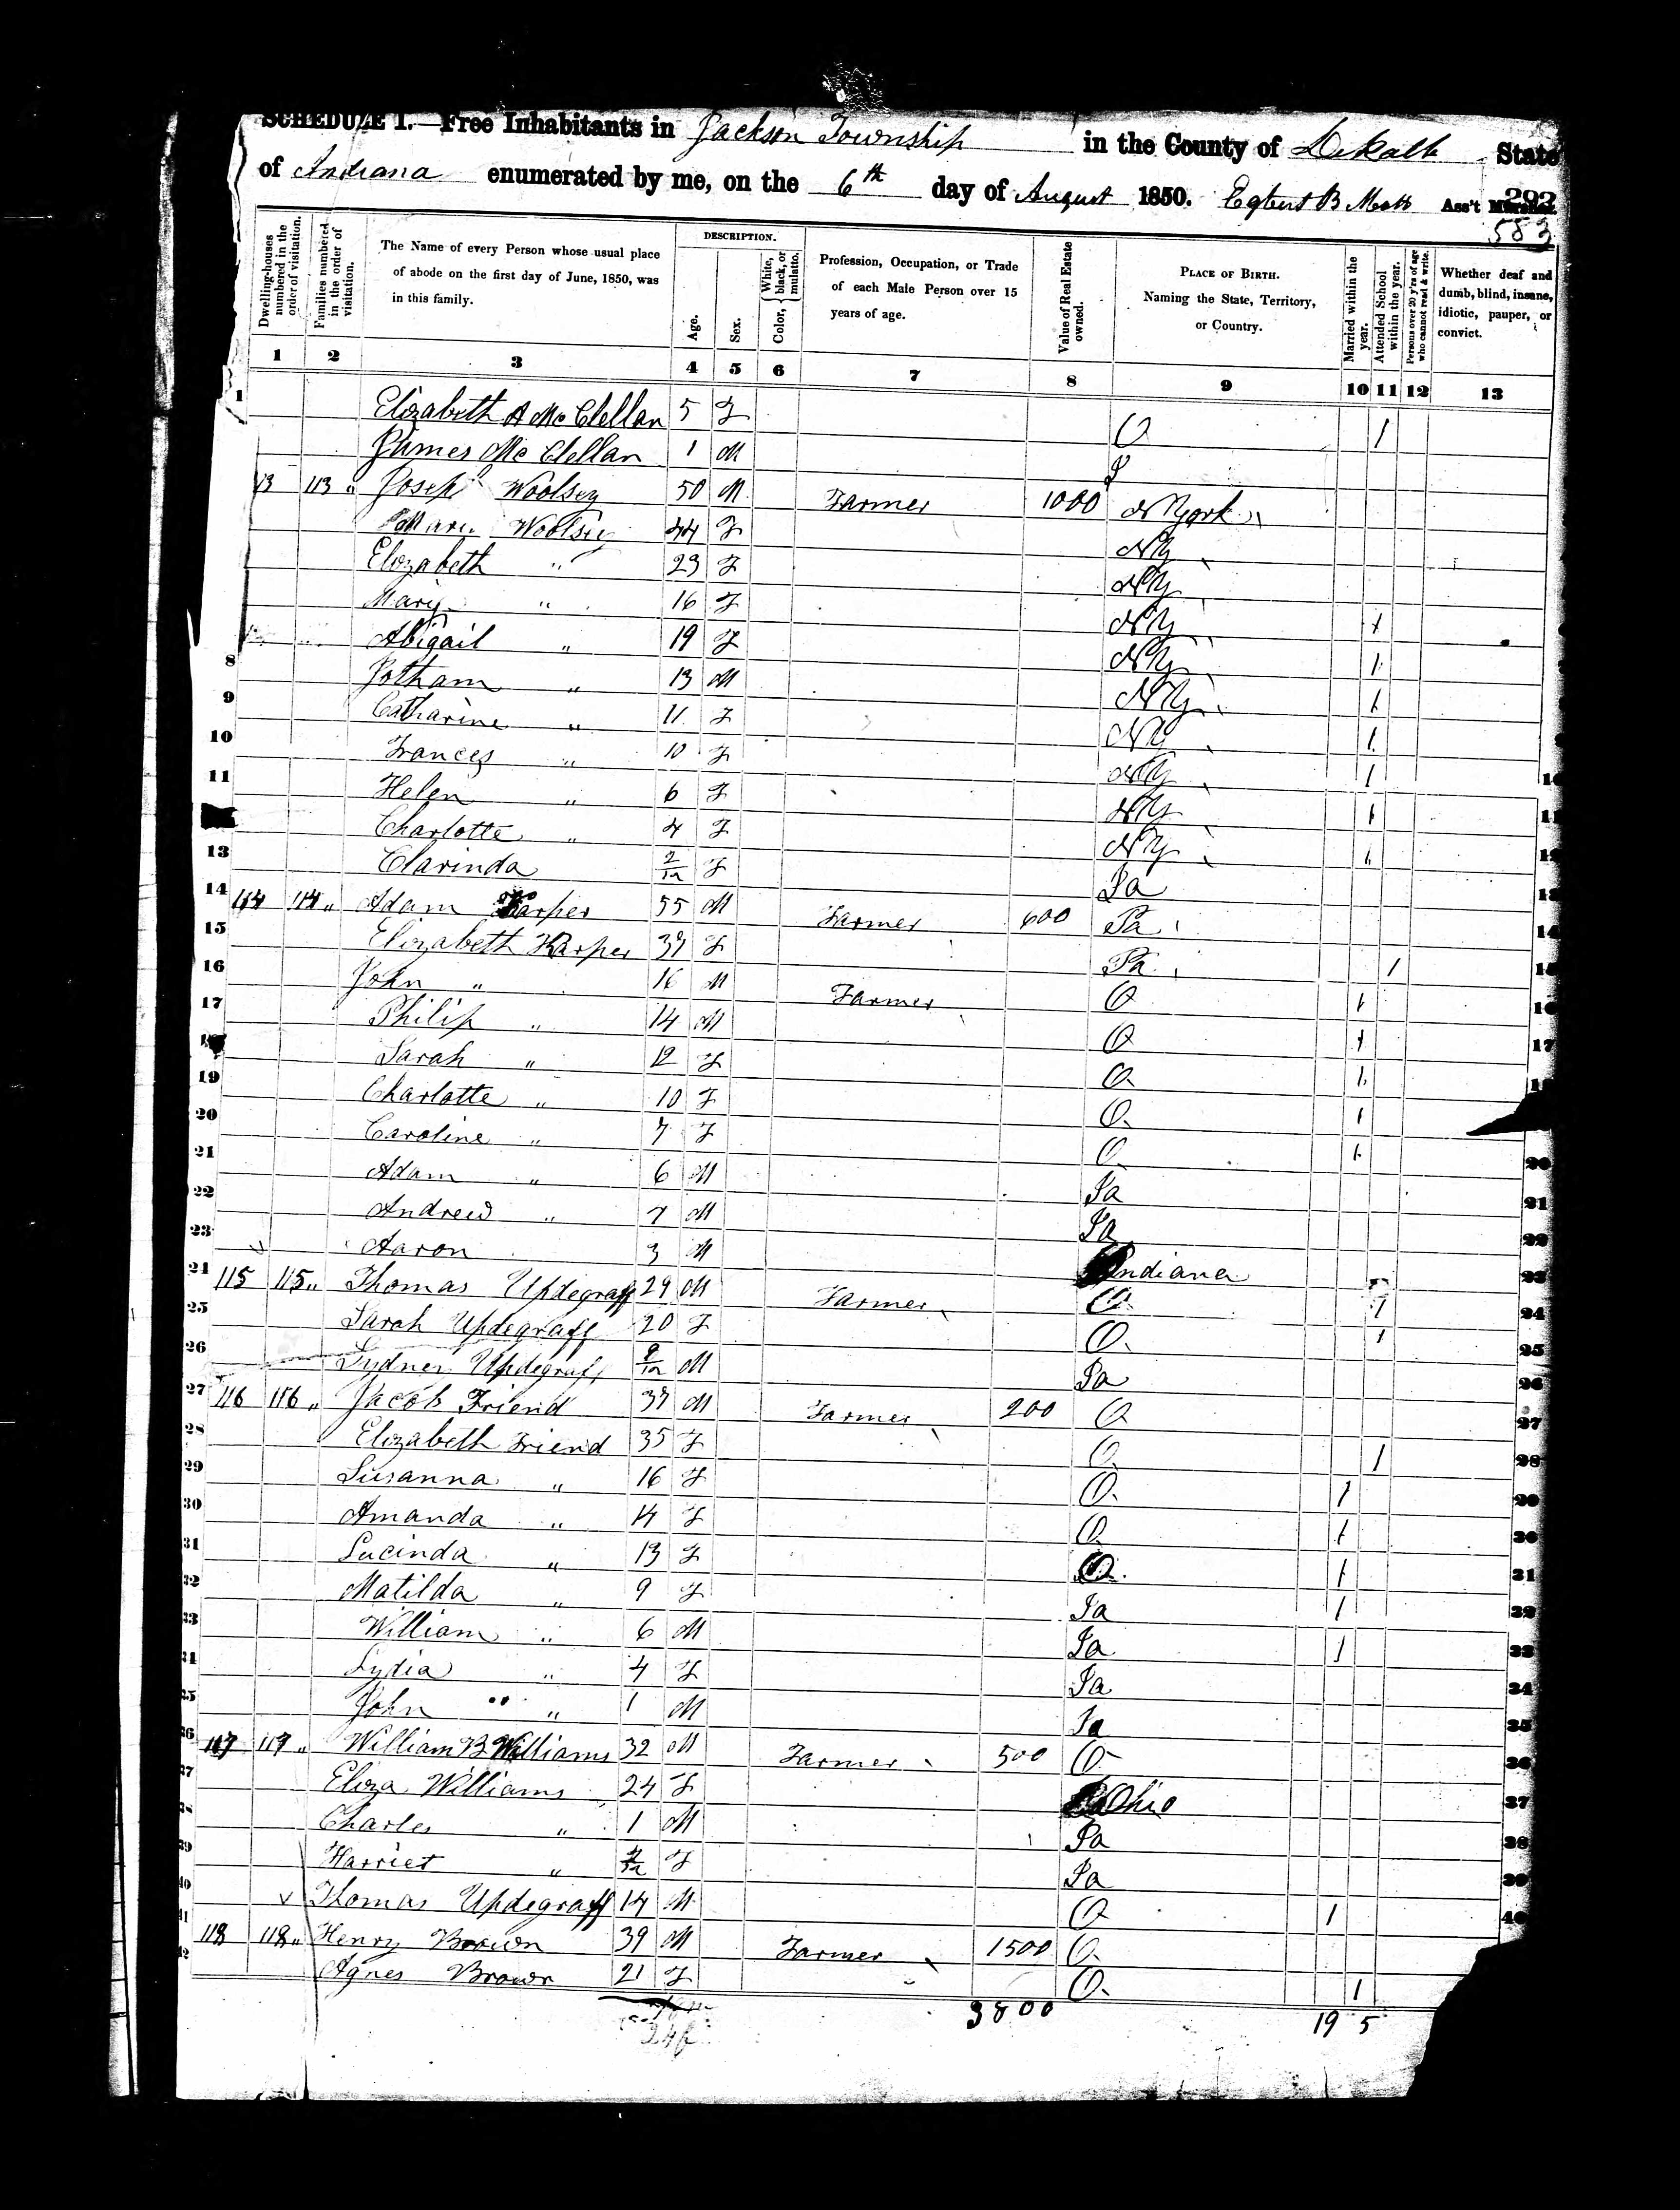 SCHEDULE I.—Free Inhabitants in Jackson Township in the County of DeKalb State
of Indiana enumerated by me, on the 6th day of August 1850. Egbert B Mott Ass't Marshal.
292
583
Dwelling-houses numbered in the order of visitation. Families numbered in the order of visitation. The Name of every Person whose usual place of abode on the first day of June, 1850, was in this family. DESCRIPTION. Age. Sex. Color, { White, black, or mulatto. Profession, Occupation, or Trade of each Male Person over 15 years of age. Value of Real Estate owned. PLACE OF BIRTH. Naming the State, Territory, or Country. Married within the year. Attended School within the year. Persons over 20 y'rs of age who cannot read & write. Whether deaf and dumb, blind, insane, idiotic, pauper, or convict.
1 2 3 4 5 6 7 8 9 10 11 12 13
1 Elizabeth A McClellan 5 F O 1
James McClellan 1 M I
13 113 " Joseph Woolsey 50 M Farmer 1000 N York
Mary Woolsey 44 F NY
Elizabeth " 23 F NY
Mary " 16 F NY 1
Abigail " 19 F NY 1
8 Jotham " 13 M NY 1
9 Catharine " 11 F NY 1
10 Frances " 10 F NY 1 10
11 Helen " 6 F NY 1 11
Charlotte " 4 F NY 1 12
13 Clarinda 2/12 F Ia 13
14 114 114 " Adam Harper 55 M Farmer 600 Pa 14
15 Elizabeth Harper 39 F Pa 1 15
16 John " 16 M Farmer O 1 16
17 Philip " 14 M O 1 17
18 Sarah " 12 F O 1 18
19 Charlotte " 10 F O 1
20 Caroline " 7 F O 1 20
21 Adam " 6 M Ia 21
22 Andrew " 7 M Ia 22
23 Aaron 3 M Indiana 23
24 115 115 " Thomas Updegraff 29 M Farmer O 1 24
25 Sarah Updegraff 20 F O 1 25
26 Sydney Updegraff 9/12 M Ia 26
27 116 116 " Jacob Friend 37 M Farmer 200 O 27
28 Elizabeth Friend 35 F O 1 28
29 Susanna " 16 F O 1 29
30 Amanda " 14 F O 1 30
31 Lucinda " 13 F O 1 31
32 Matilda " 9 F Ia 1 32
33 William " 6 M Ia 1 33
34 Lydia " 4 F Ia 34
35 John " 1 M Ia 35
36 117 117 " William B Williams 32 M Farmer 500 O 36
37 Eliza Williams 24 F Ohio 37
38 Charles " 1 M Ia 38
39 Harriet " F Ia 39
40 Thomas Updegraff 14 M O 1 40
41 118 118 " Henry Brown 39 M Farmer 1500 O
42 Agnes Brown 21 F O 1
3800 19 5